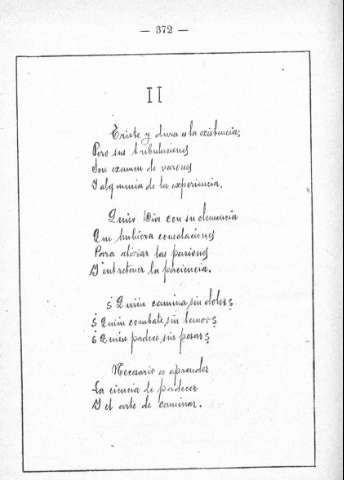 — 372 —
II
Triste y dura es la existencia;
Pero sus tribulaciones
Son examen de varones
Y alquimia de la experiencia.
Quiso Dios con su clemencia
Que hubiera consolaciones
Para aliviar las pasiones
Y entretener la paciencia.
¿Quién camina sin dolor?
¿Quién combate sin temor?
¿Quién padece sin pesar?
Necesario es aprender
La ciencia de padecer
Y el arte de caminar.